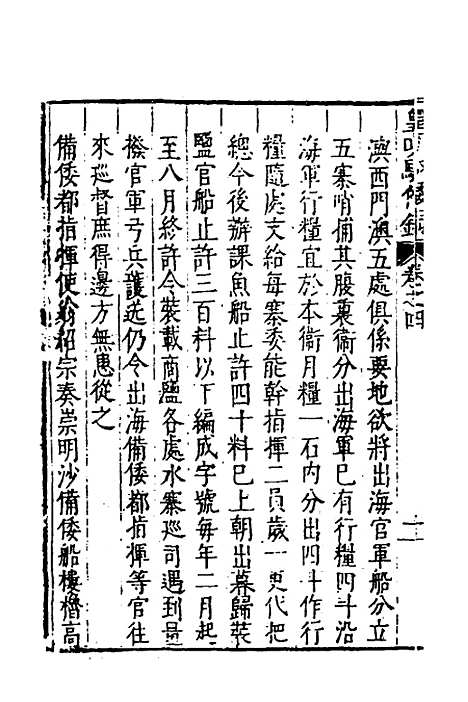 澳西門澳五處俱係要地欲將出海官軍船分立
五寨哨捕其腹裏衛分出海軍已有行糧四斗沿
海軍行糧宜於本衛月糧一石內分出四斗作行
糧隨處支給每寨委能幹指揮二員歲一更代把
總今後辦課魚船止許四十料已上朝出暮歸裝
鹽官船止許三百料以下編成字號每年二月起
至八月終許令裝載商鹽各處水寨巡司遇到量
撥官軍弓兵護送仍令出海備倭都指揮等官往
來巡督庶得邊方無患從之
備倭都指揮使翁紹宗奏崇明沙備倭船樓櫓高
卷之四